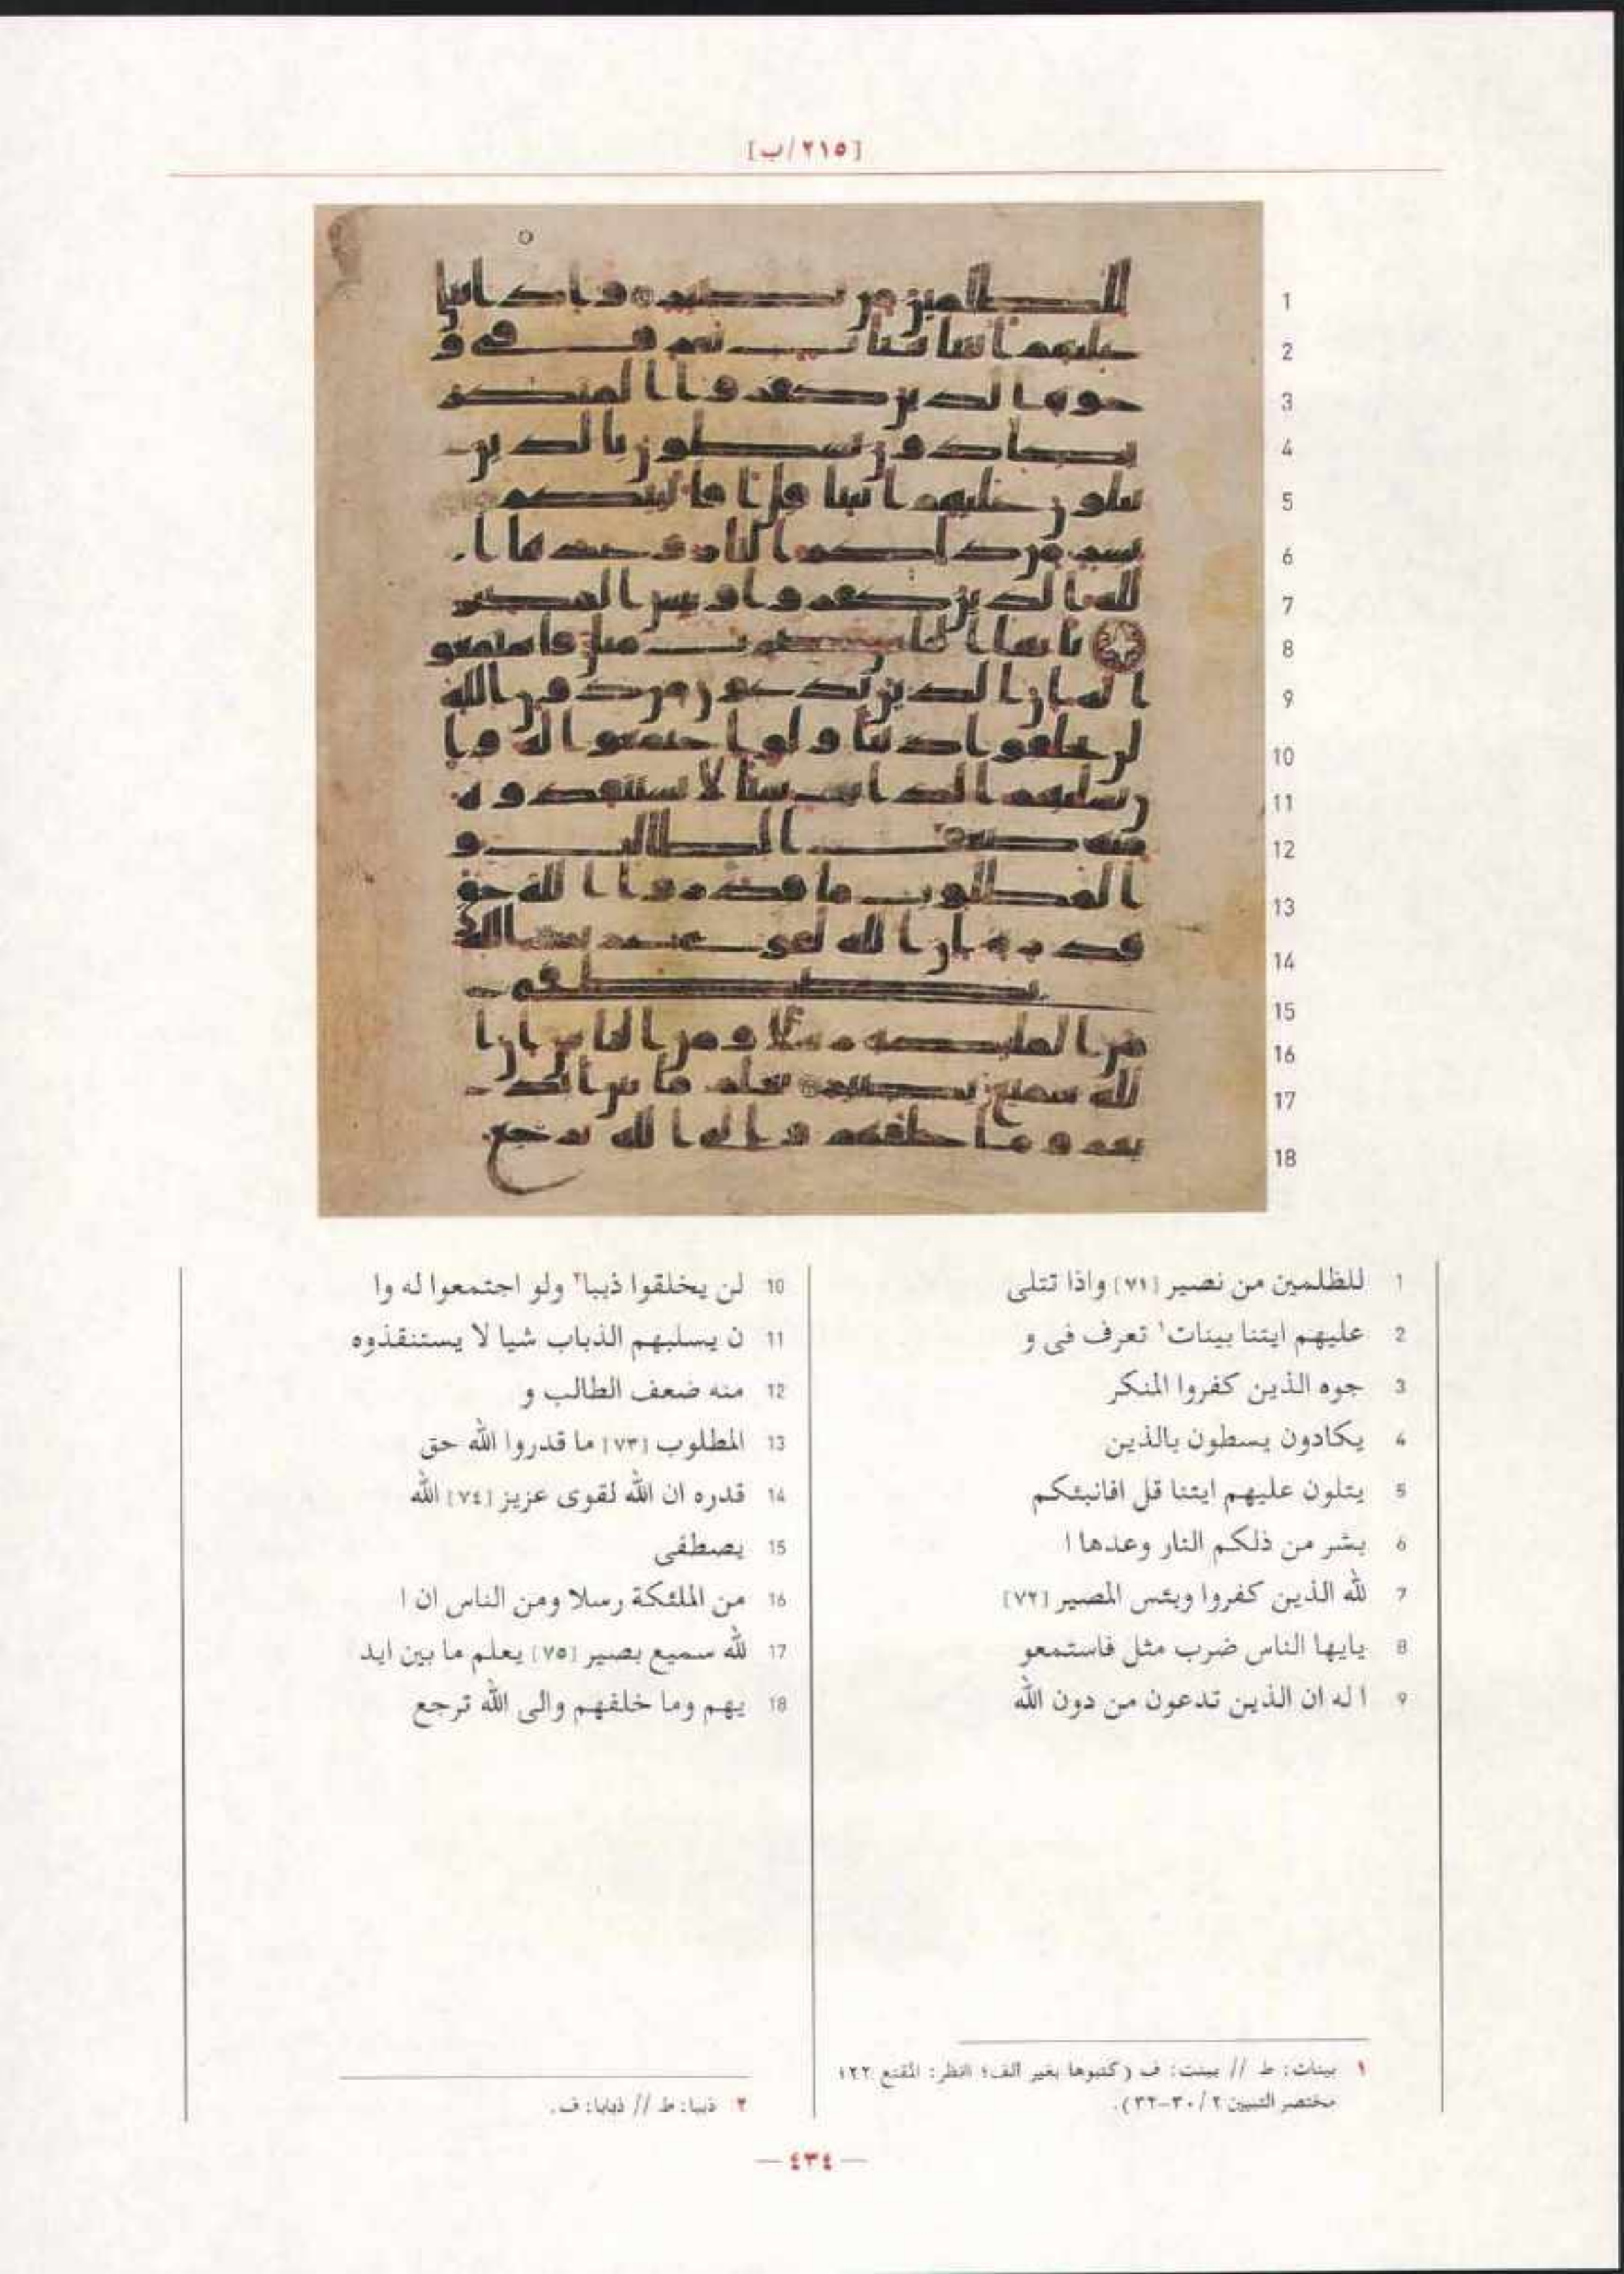 [٢١٥/ب]
1 للظلمين من نصير [٧١] واذا تتلى
2 عليهم ايتنا بينات١ تعرف فى و
3 جوه الذين كفروا المنكر
4 يكادون يسطون بالذين
5 يتلون عليهم ايتنا قل افانبئكم
6 بشر من ذلكم النار وعدها ا
7 لله الذين كفروا وبئس المصير [٧٢]
8 يايها الناس ضرب مثل فاستمعو
9 ا له ان الذين تدعون من دون الله
10 لن يخلقوا ذببا٢ ولو اجتمعوا له وا
11 ن يسلبهم الذباب شيا لا يستنقذوه
12 منه ضعف الطالب و
13 المطلوب [٧٣] ما قدروا الله حق
14 قدره ان الله لقوى عزيز [٧٤] الله
15 يصطفى
16 من الملئكة رسلا ومن الناس ان ا
17 لله سميع بصير [٧٥] يعلم ما بين ايد
18 يهم وما خلفهم والى الله ترجع
١ بينات: ط // بينت: ف (كتبوها بغير ألف؛ انظر: المقنع ٢٢؛
مختصر التبيين ٢/ ٣٠-٣٢).
٢ ذببا: ط // ذبابا: ف.
— ٤٣٤ —